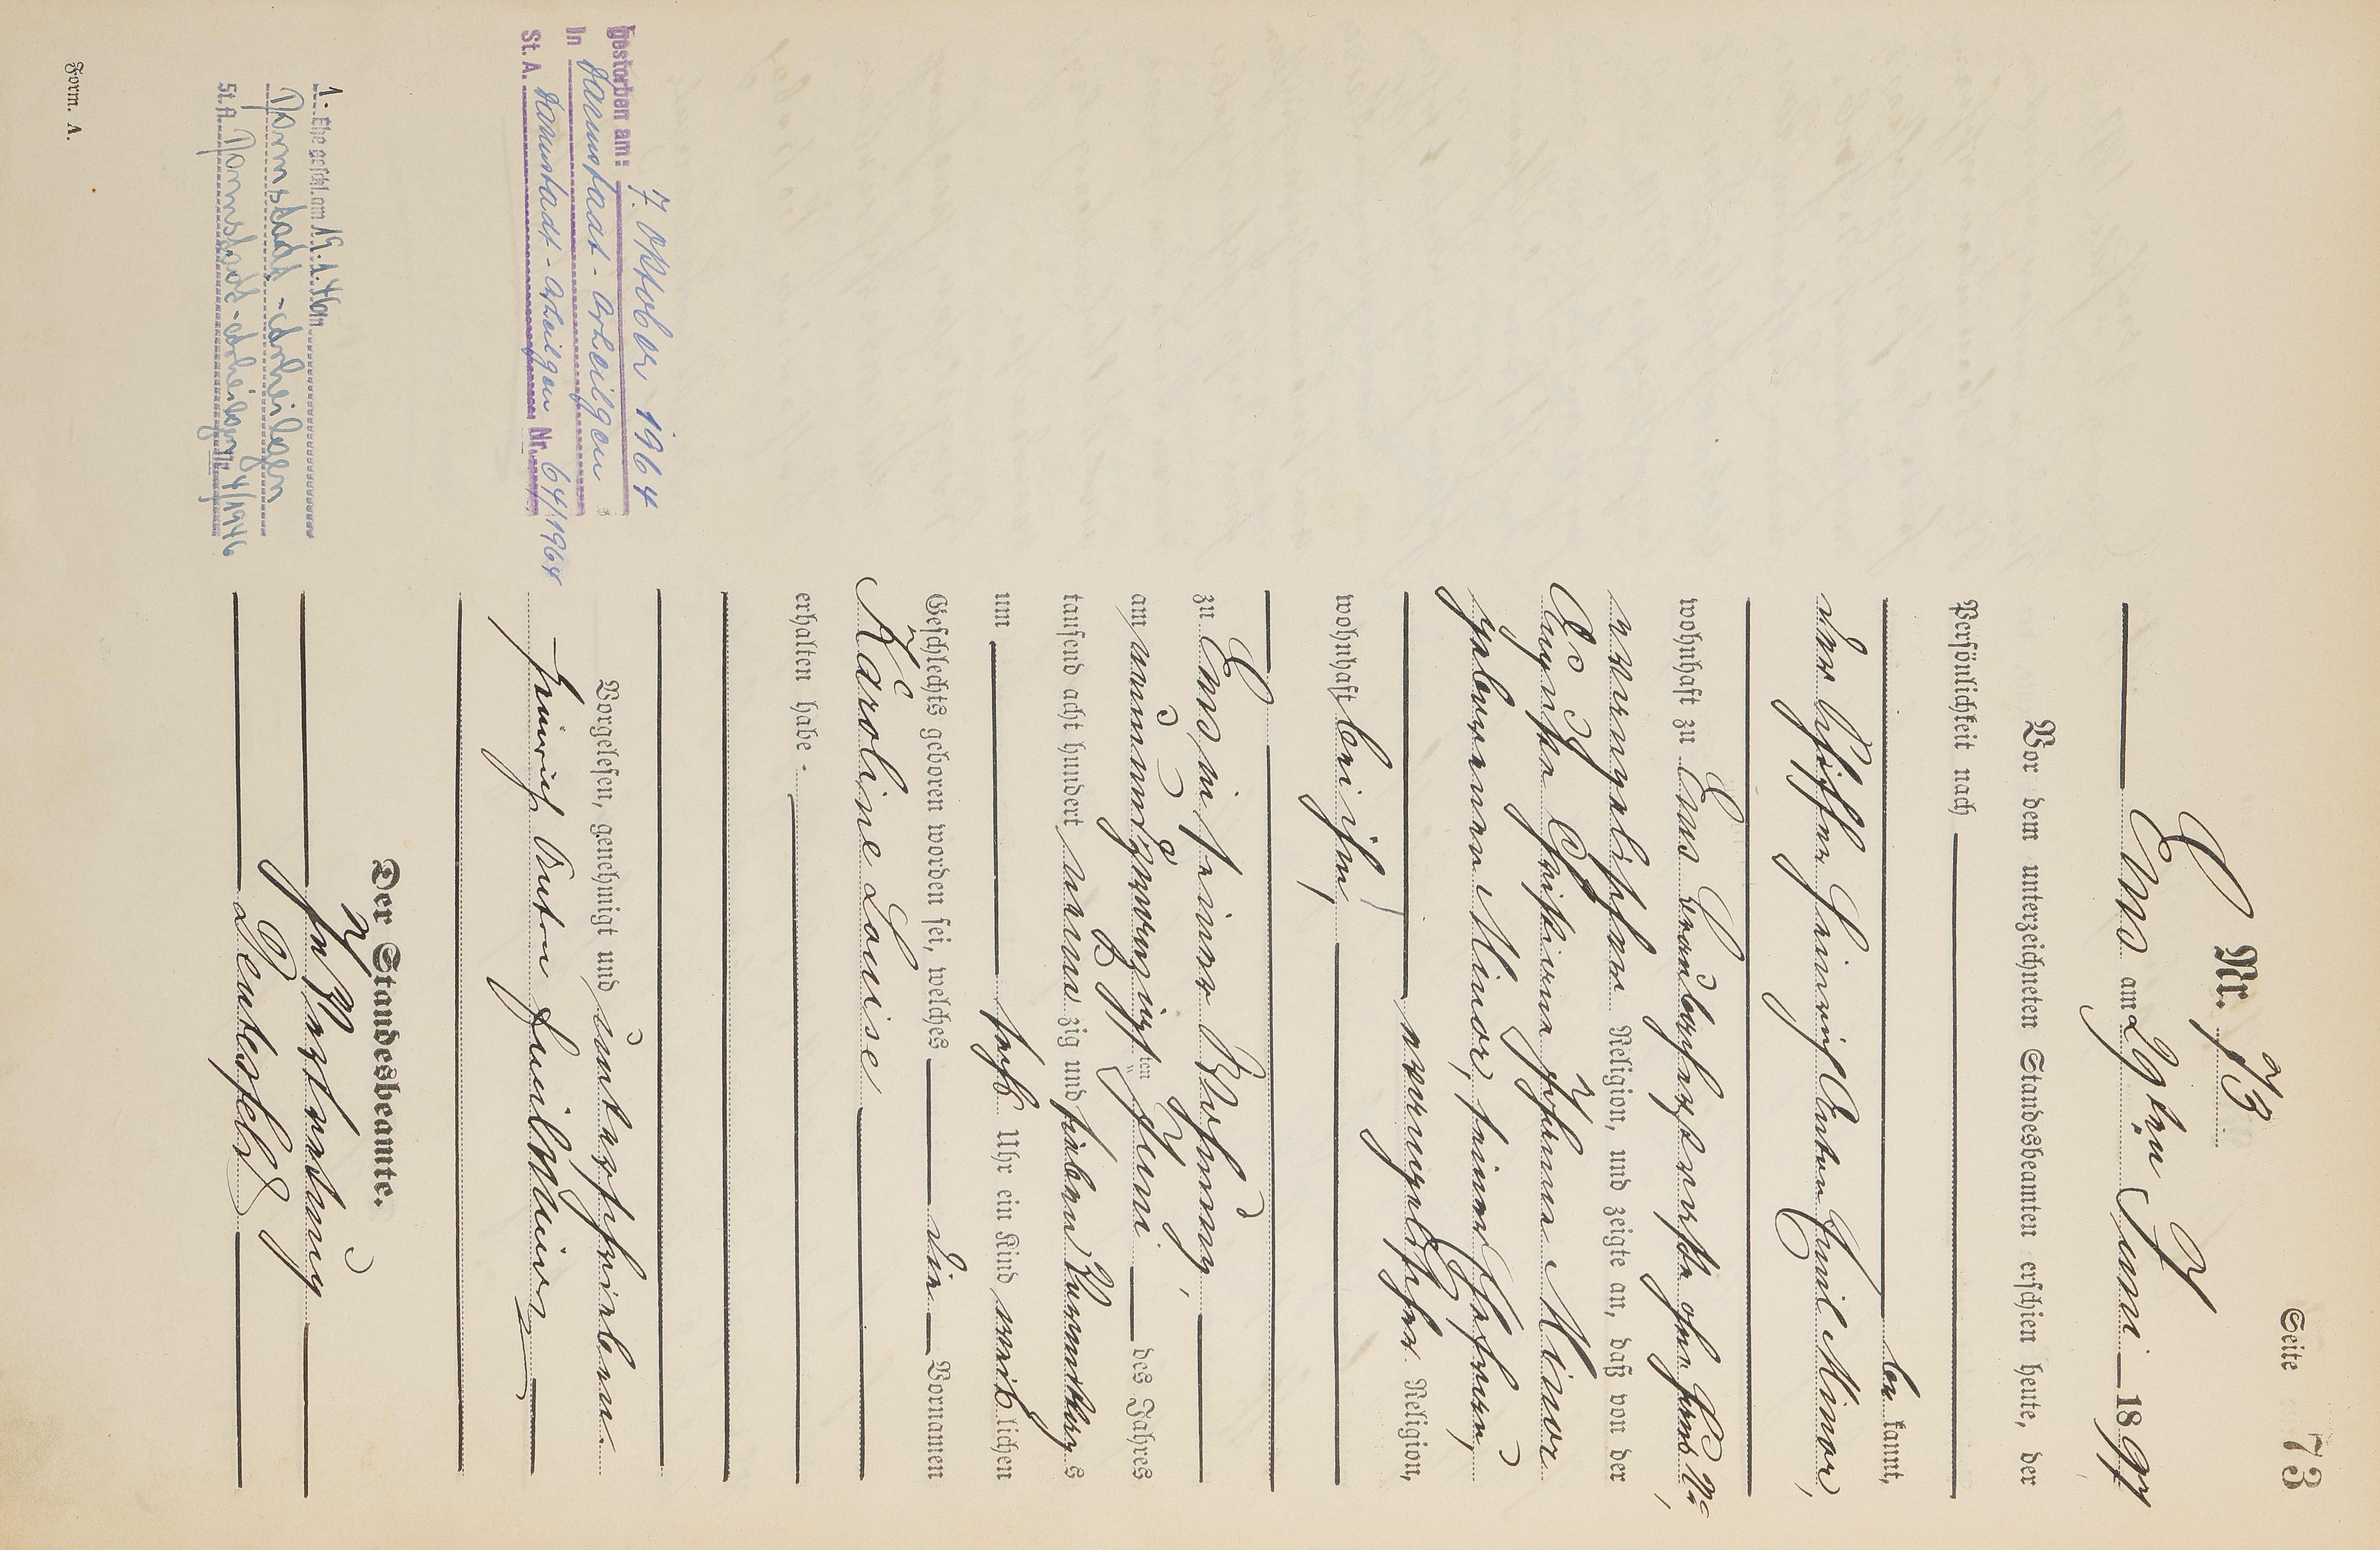 Seite 73
Nr. 73
Ems am 29ten Juni 1897
Vor dem unterzeichneten Standesbeamten erschien heute, der
Persönlichkeit nach
bekannt,
der Schiffer Heinrich Anton Emil Minor,
wohnhaft zu Ems
evangelischer Religion, und zeigte an, daß von der
Auguste Christiane Johanna Minor
geborenen Minor, seiner Ehefrau,
evangelischer Religion,
wohnhaft bei ihm,
zu Ems in seiner Wohnung,
am neunundzwanzigsten Juni des Jahres
tausend acht hundert neunzig und sieben Vormittags
um sechs Uhr ein Kind weiblichen
Geschlechts geboren worden sei, welches die Vornamen
Karoline Louise
erhalten habe.
Vorgelesen, genehmigt und unterschrieben
Heinrich Anton Emil Minor
Der Standesbeamte.
In Vertretung
gestorben am: 7. Oktober 1964
in Darmstadt - Arheilgen
St. A. Darmstadt - Arheilgen Nr. 64/1964
1. Ehe geschl. am 19.1.46 in
Darmstadt - Arheilgen
St. A. Darmstadt - Arheilgen Nr. 4/1946
Form. A.